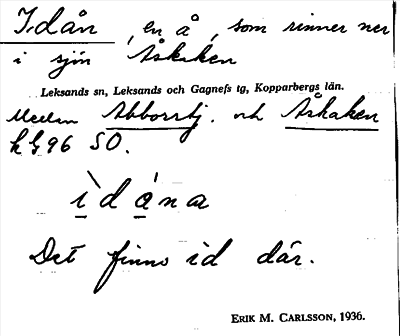 Idån, en å, som rinner ner
i sjön Åskaken
Leksands sn, Leksands och Gagnefs tg, Kopparbergs län.
Mellan Abborrtj. och Åskaken
96 SO.
ìdána
Det finns id där.
ERIK M. CARLSSON, 1936.